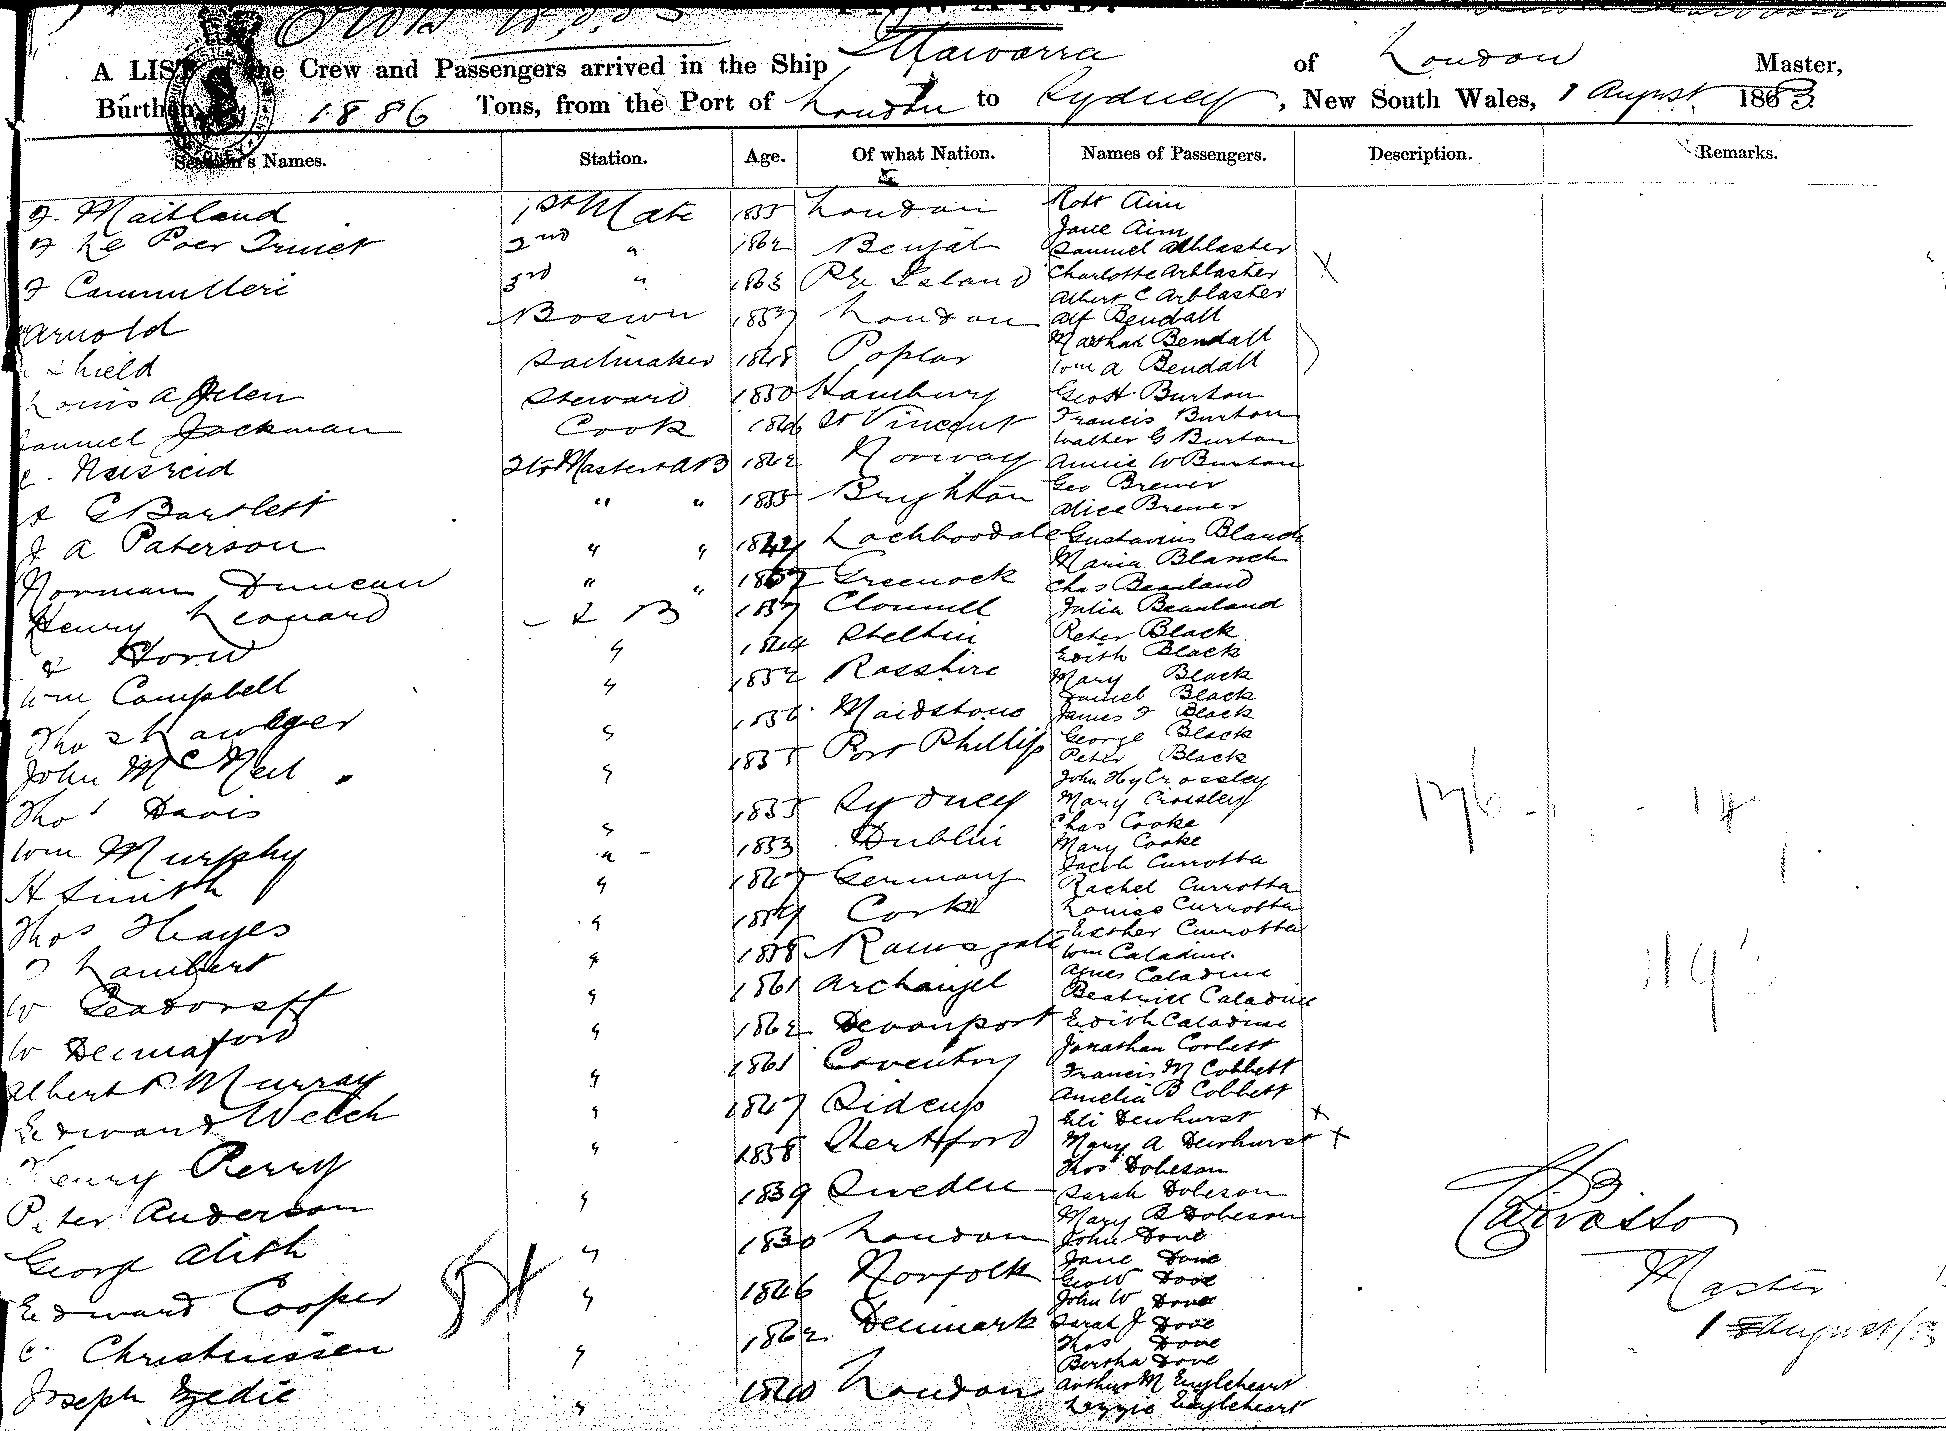 A LIST of the Crew and Passengers arrived in the Ship Illawarra of London Master,
Burthen 1886 Tons, from the Port of London to Sydney, New South Wales, 1 August 1883
Seamen's Names. Station. Age. Of what Nation. Names of Passengers. Description. Remarks.
Maitland 1st Mate 1855 London Robt Aim
Jane Aim
Le Poer Trench 2nd " 1862 Bengal Samuel Arblaster
Cammilleri 3rd " 1863 Island Charlotte Arblaster
Albert C Arblaster
Arnold Boswn 1857 London Alf Bendall
Marthah Bendall
Shield Sailmaker 1848 Poplar Wm A Bendall
Louis A Steward 1850 Hamburg Burton
Samuel Jackman Cook St Vincent Francis Burton
Walter G Burton
Master & AB 1862 Norway Annie W Burton
Geo Brewer
Bartlett " " 1855 Brighton Alice Brewer
J A Paterson " " Gustavus Blanch
Maria Blanch
Norman Duncan " " Greenock Chas Beanland
Henry Leonard A B 1857 Clonmel Julia Beanland
Horn " 1844 Stettin Peter Black
Edith Black
Wm Campbell " 1852 Rosshire Mary Black
Daniel Black
Thos " Maidstone James F Black
George Black
John McNeil " 1855 Port Phillip Peter Black
John Hy Crossley
Thos Davis " 1855 Sydney Mary Crossley
Chas Cooke 176 14
Wm Murphy " 1853 Dublin Mary Cooke
Jacob Currotta
H Smith " Germany Rachel Currotta
Louisa Currotta
Thos Hayes " Cork Esther Currotta
Lambert " 1858 Ramsgate Wm Caladine 119
Agnes Caladine
W Seadorff " 1861 Archangel Beatrice Caladine
W " 1862 Devonport Edith Caladine
Jonathan Corbett
Albert P Murray " 1861 Coventry Francis M Cobbett
Amelia B Cobbett
Edward Welch " 1847 Sidcup Eli Dewhurst
Mary A Dewhurst
Henry Perry " 1858 Hertford Thos Dobeson
Peter Anderson " 1839 Sweden Sarah Dobeson
Mary B Dobeson
George Alish " 1830 London John Dove
Jane Dove
Edward Cooper " 1846 Norfolk Geo W Dove
John W Dove
C. Christinssen " 1862 Denmark Sarah J Dove
Thos Dove
Bertha Dove
Joseph " 1840 London Arthur M Engleheart
Lizzie Engleheart
Master
1 August/83